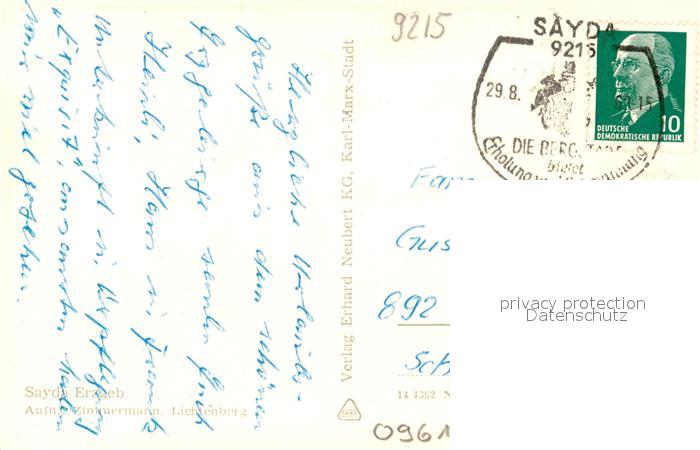 9215
SAYDA
9215
29.8.
DIE BERGSTADT
bietet
Erholung und Entspannung
10
DEUTSCHE
DEMOKRATISCHE REPUBLIK
Herzliche Urlaubs-
grüße aus dem schönen
Erzgebirge senden Euch
Heinz, Hans u.
Unterkunft u. Verpflegung
"Exquisit", ansonsten haben
wir viel gesehen.
Verlag Erhard Neubert KG, Karl-Marx-Stadt
Sayda Erzgeb.
Aufn.: Zimmermann, Lichtenberg
Fam
Gus
892
Sch
14 4362 N
0961
privacy protection
Datenschutz